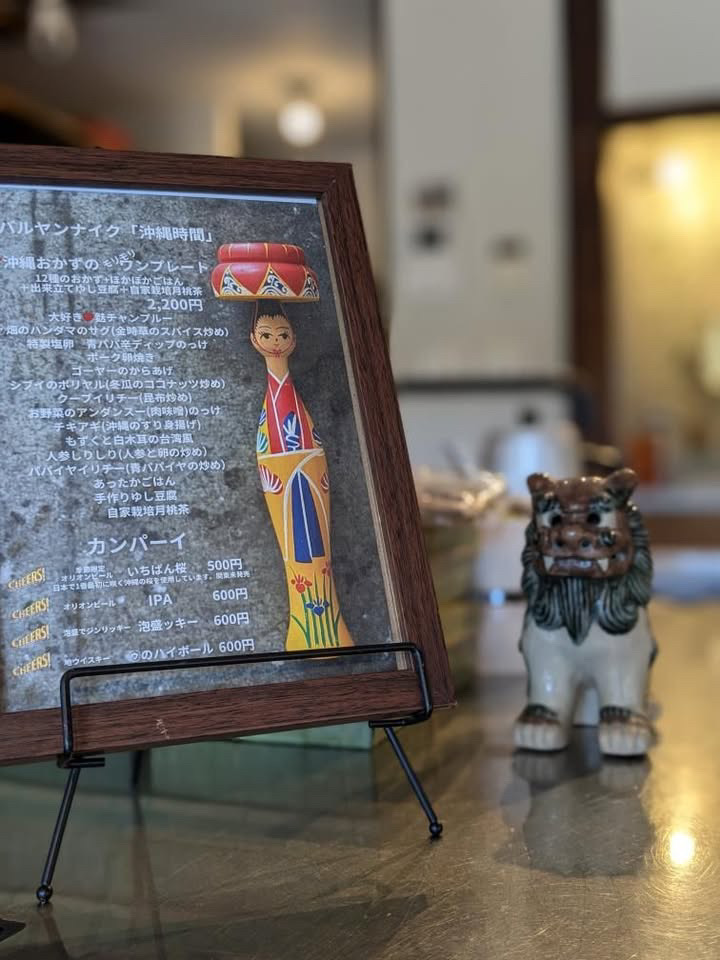 バルヤンナイク「沖縄時間」
沖縄おかずの モリモリ ワンプレート
12種のおかず+ほかほかごはん
+出来立てゆし豆腐+自家栽培月桃茶
2,200円
大好き 麩チャンプルー
畑のハンダマのサグ(金時草のスパイス炒め)
特製塩卵 青パパ辛ディップのっけ
ポーク卵焼き
ゴーヤーのからあげ
シブイのポリヤル(冬瓜のココナッツ炒め)
クーブイリチー(昆布炒め)
お野菜のアンダンスー(肉味噌)のっけ
チキアギ(沖縄のすり身揚げ)
もずくと白木耳の台湾風
人参しりしり(人参と卵の炒め)
パパイヤイリチー(青パパイヤの炒め)
あったかごはん
手作りゆし豆腐
自家栽培月桃茶
カンパーイ
CHEERS! 季節限定 オリオンビール いちばん桜 500円
日本で1番最初に咲く沖縄の桜を使用しています。関東未発売
CHEERS! オリオンビール IPA 600円
CHEERS! 泡盛でジンリッキー 泡盛ッキー 600円
CHEERS! 地ウイスキー のハイボール 600円